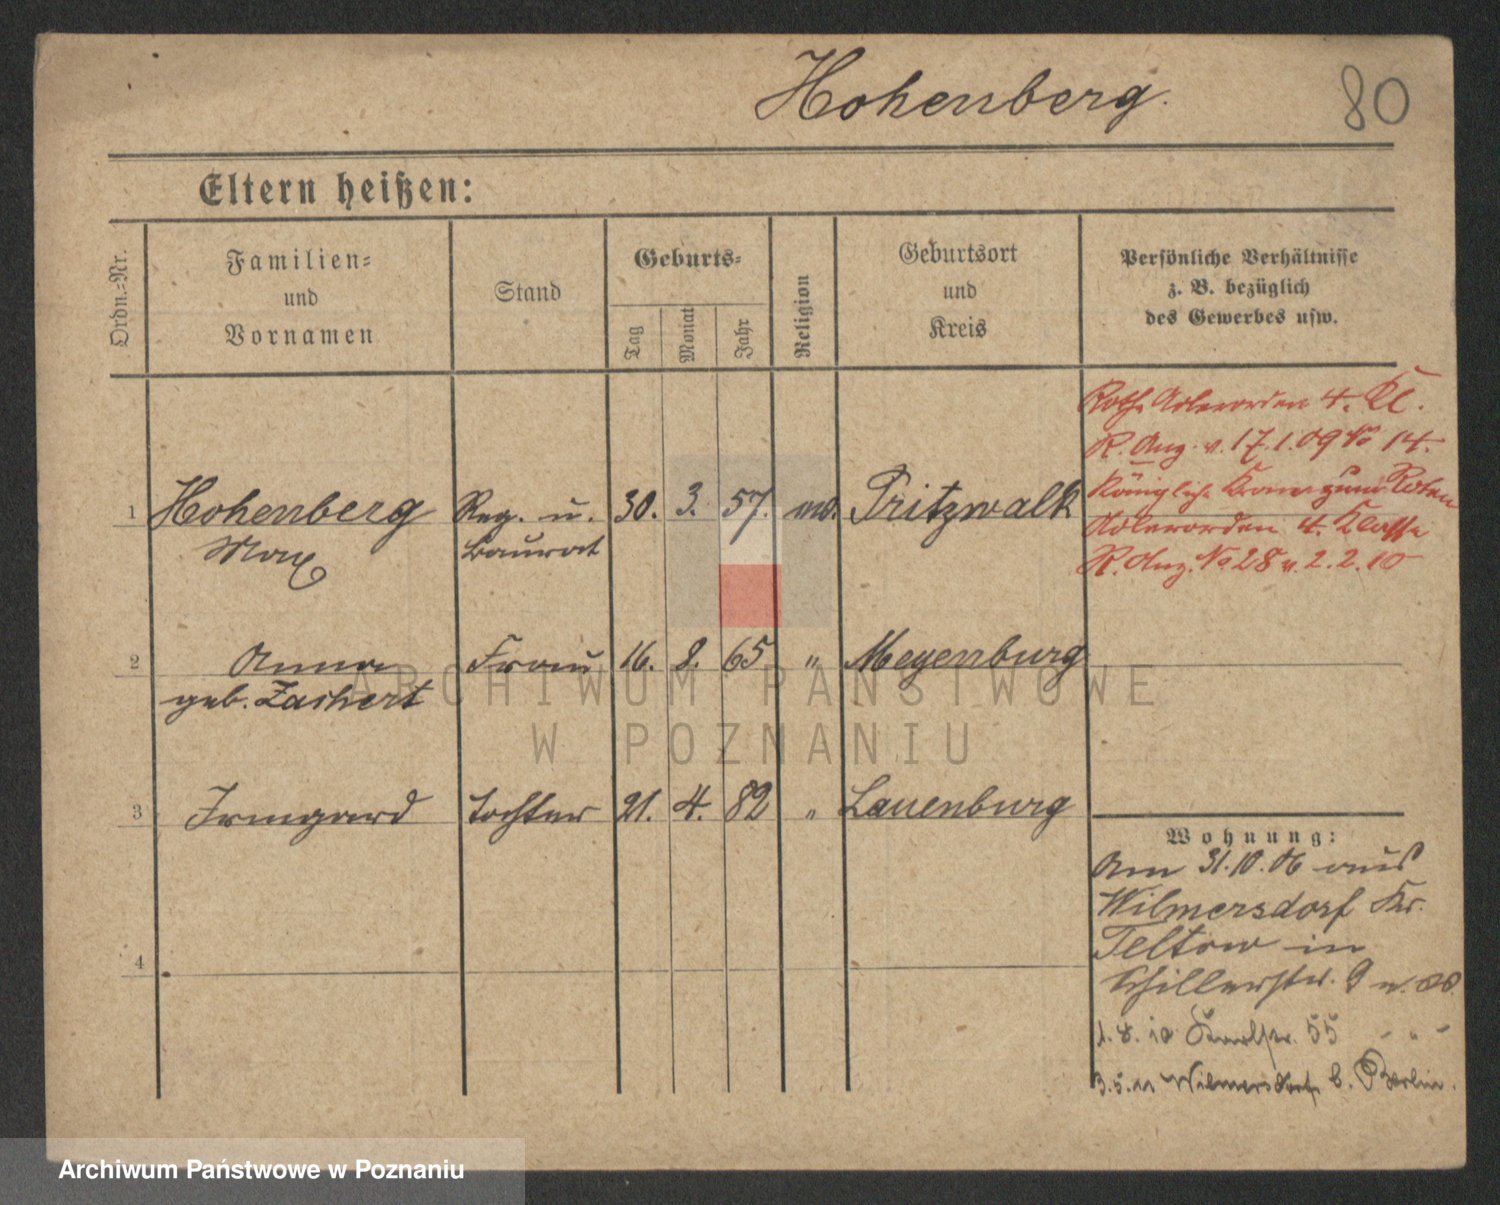 Hohenberg.
80
Eltern heißen:
Ordn.-Nr.
Familien-
und
Vornamen
Stand
Geburts-
Tag
Monat
Jahr
Religion
Geburtsort
und
Kreis
Persönliche Verhältnisse
z. B. bezüglich
des Gewerbes usw.
Roth. Adlerorden 4. Kl.
R. Anz. v. 17.1.09 No 14.
1 Hohenberg Reg. u. 30. 3. 57. Pritzwalk
Max Baurat
Königliche Krone zum Roten
Adlerorden 4. Klasse
R. Anz. No 28 v. 2.2.10
2 Anna Frau 16. 8. 65 " Meyenburg
geb. Zachert
3 Irmgard Tochter 21. 4. 82 " Lauenburg
4
Wohnung:
Am 31.10.06 aus
Wilmersdorf Kr.
Teltow in
Schillerstr. 9
1.8.10 Karlstr. 55 - " -
3.5.11 Wilmersdorf b. Berlin.
ARCHIWUM PAŃSTWOWE
W POZNANIU
Archiwum Państwowe w Poznaniu